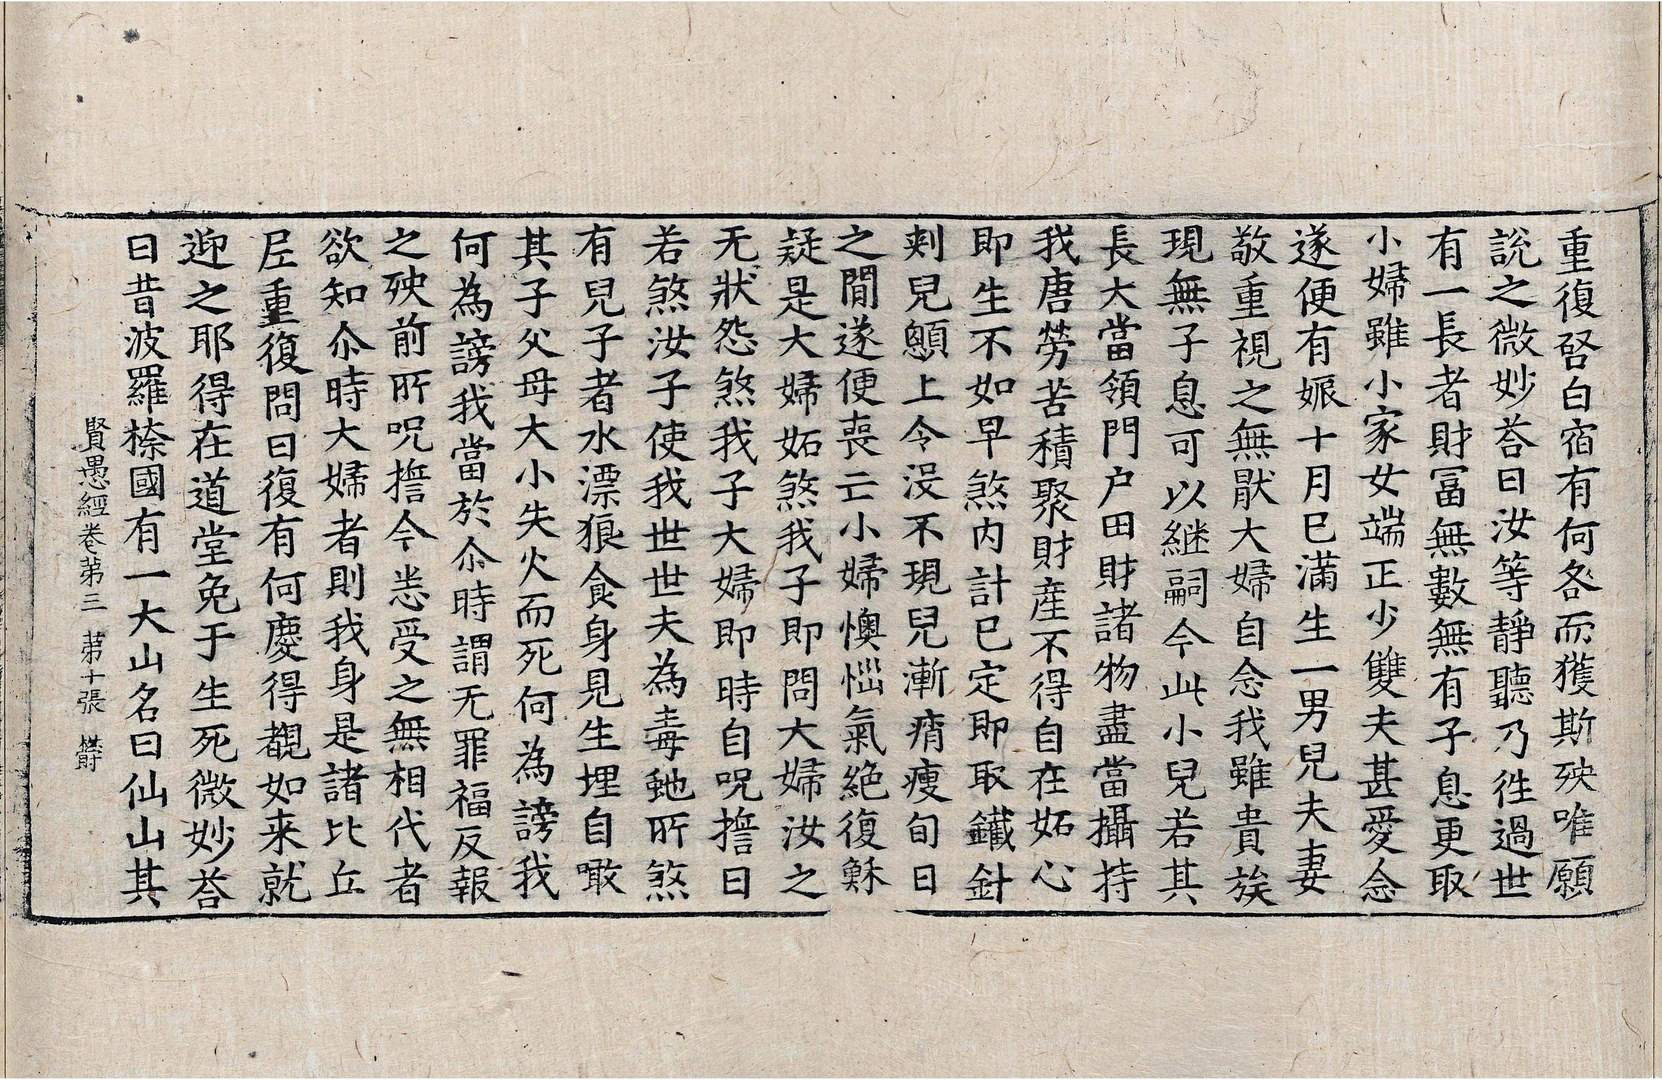 重復啓白宿有何咎而獲斯殃唯願
說之微妙荅曰汝等靜聽乃徃過世
有一長者財冨無數無有子息更取
小婦雖小家女端正少雙夫甚愛念
遂便有娠十月已滿生一男兒夫妻
敬重視之無猒大婦自念我雖貴族
現無子息可以継嗣今此小兒若其
長大當領門户田財諸物盡當攝持
我唐勞苦積聚財產不得自在妬心
即生不如早煞内計已定即取鐵針
刺兒顖上令没不現兒漸痟瘦旬日
之間遂便喪亡小婦懊惱氣絶復穌
疑是大婦妬煞我子即問大婦汝之
无狀怨煞我子大婦即時自呪誓曰
若煞汝子使我世世夫為毒虵所煞
有兒子者水漂狼食身見生埋自噉
其子父母大小失火而死何為謗我
何為謗我當於尒時謂无罪福反報
之殃前所呪誓今悉受之無相代者
欲知尒時大婦者則我身是諸比丘
尼重復問曰復有何慶得覩如来就
迎之耶得在道堂免于生死微妙荅
曰昔波羅㮈國有一大山名曰仙山其
賢愚經卷第三　第十張　欝